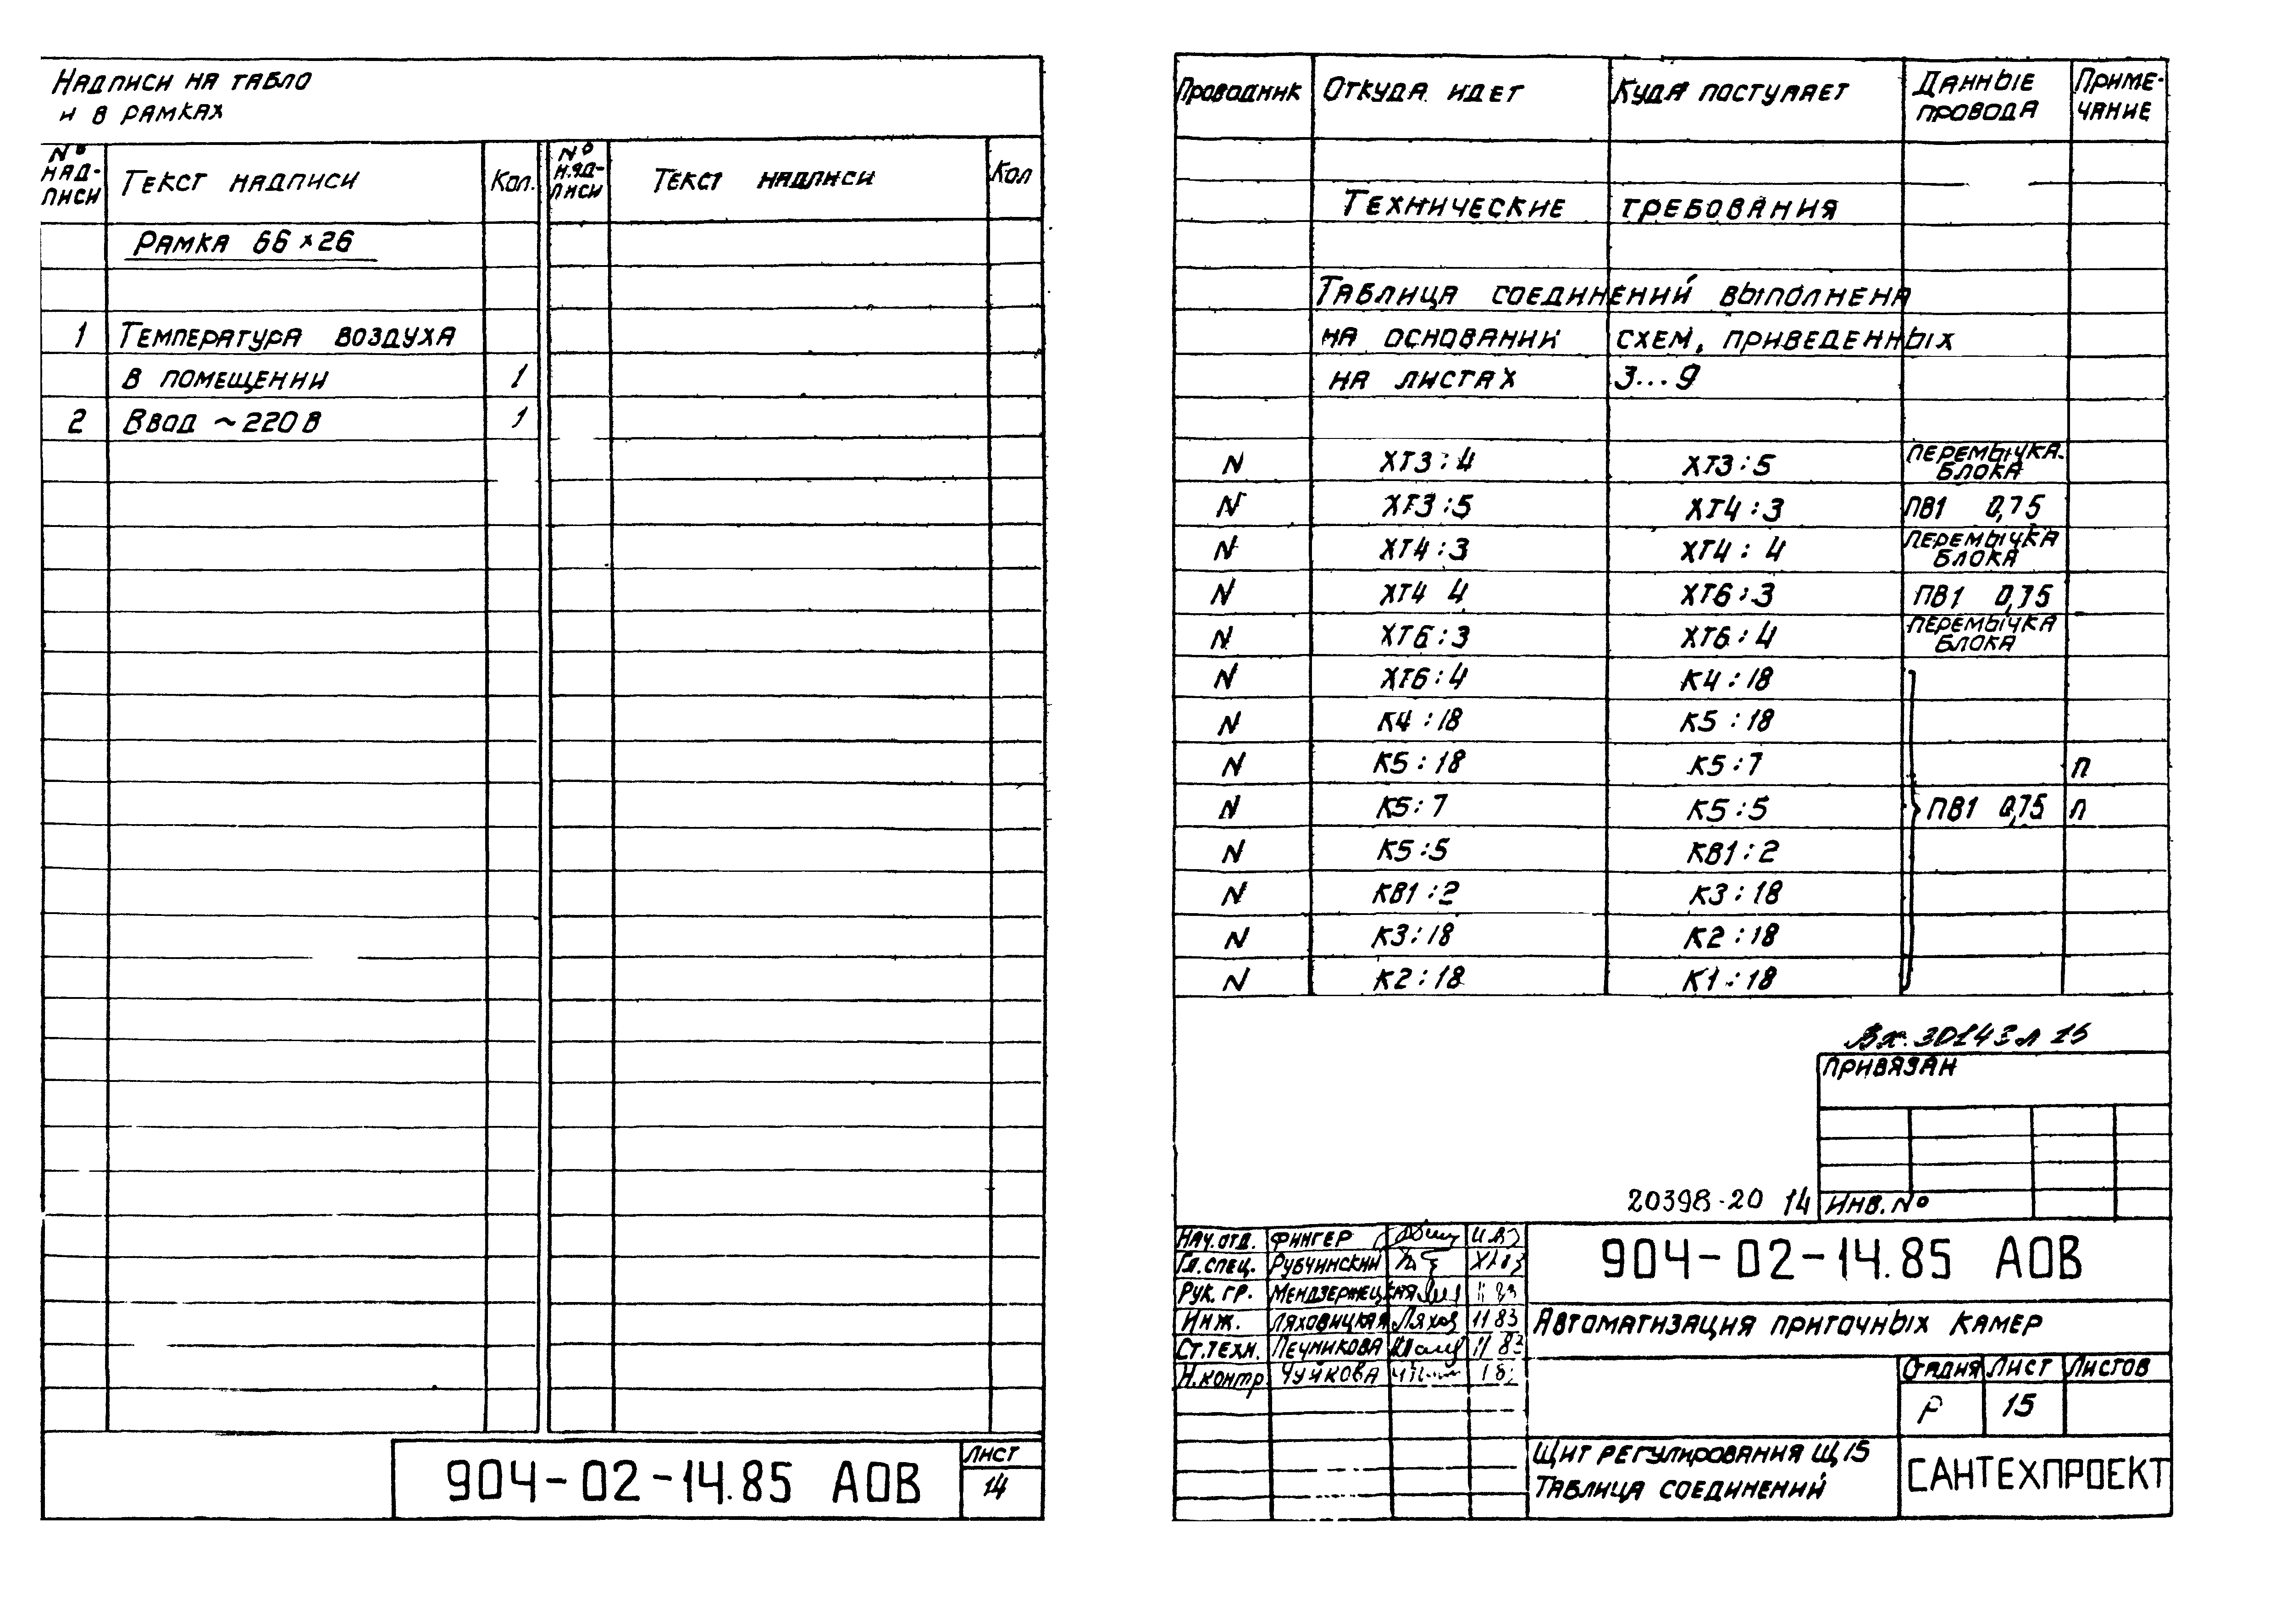 Надписи на табло
и в рамках
№ надписи Текст надписи Кол. № надписи Текст надписи Кол
Рамка 66×26
1 Температура воздуха
в помещении 1
2 Ввод ~220 В 1
904-02-14.85 АОВ
Лист
14
Проводник Откуда идет Куда поступает Данные провода Примечание
Технические требования
Таблица соединений выполнена
на основании схем, приведенных
на листах 3...9
N ХТ3:4 ХТ3:5 Перемычка блока
N ХТ3:5 ХТ4:3 ПВ1 0,75
N ХТ4:3 ХТ4:4 Перемычка блока
N ХТ4 4 ХТ6:3 ПВ1 0,75
N ХТ6:3 ХТ6:4 Перемычка блока
N ХТ6:4 К4:18
N К4:18 К5:18
N К5:18 К5:7 п
N К5:7 К5:5 ПВ1 0,75 п
N К5:5 КВ1:2
N КВ1:2 К3:18
N К3:18 К2:18
N К2:18 К1:18
Привязан
20398-20 14
Инв. №
Нач. отд. Фингер
Гл. спец. Рубчинский
Рук. гр. Мендзержецкая
Инж. Ляховицкая 11 83
Ст. техн. Печникова 11 83
Н. контр Чуйкова
904-02-14.85 АОВ
Автоматизация приточных камер
Стадия Лист Листов
Р 15
Щит регулирования Щ15
Таблица соединений
САНТЕХПРОЕКТ